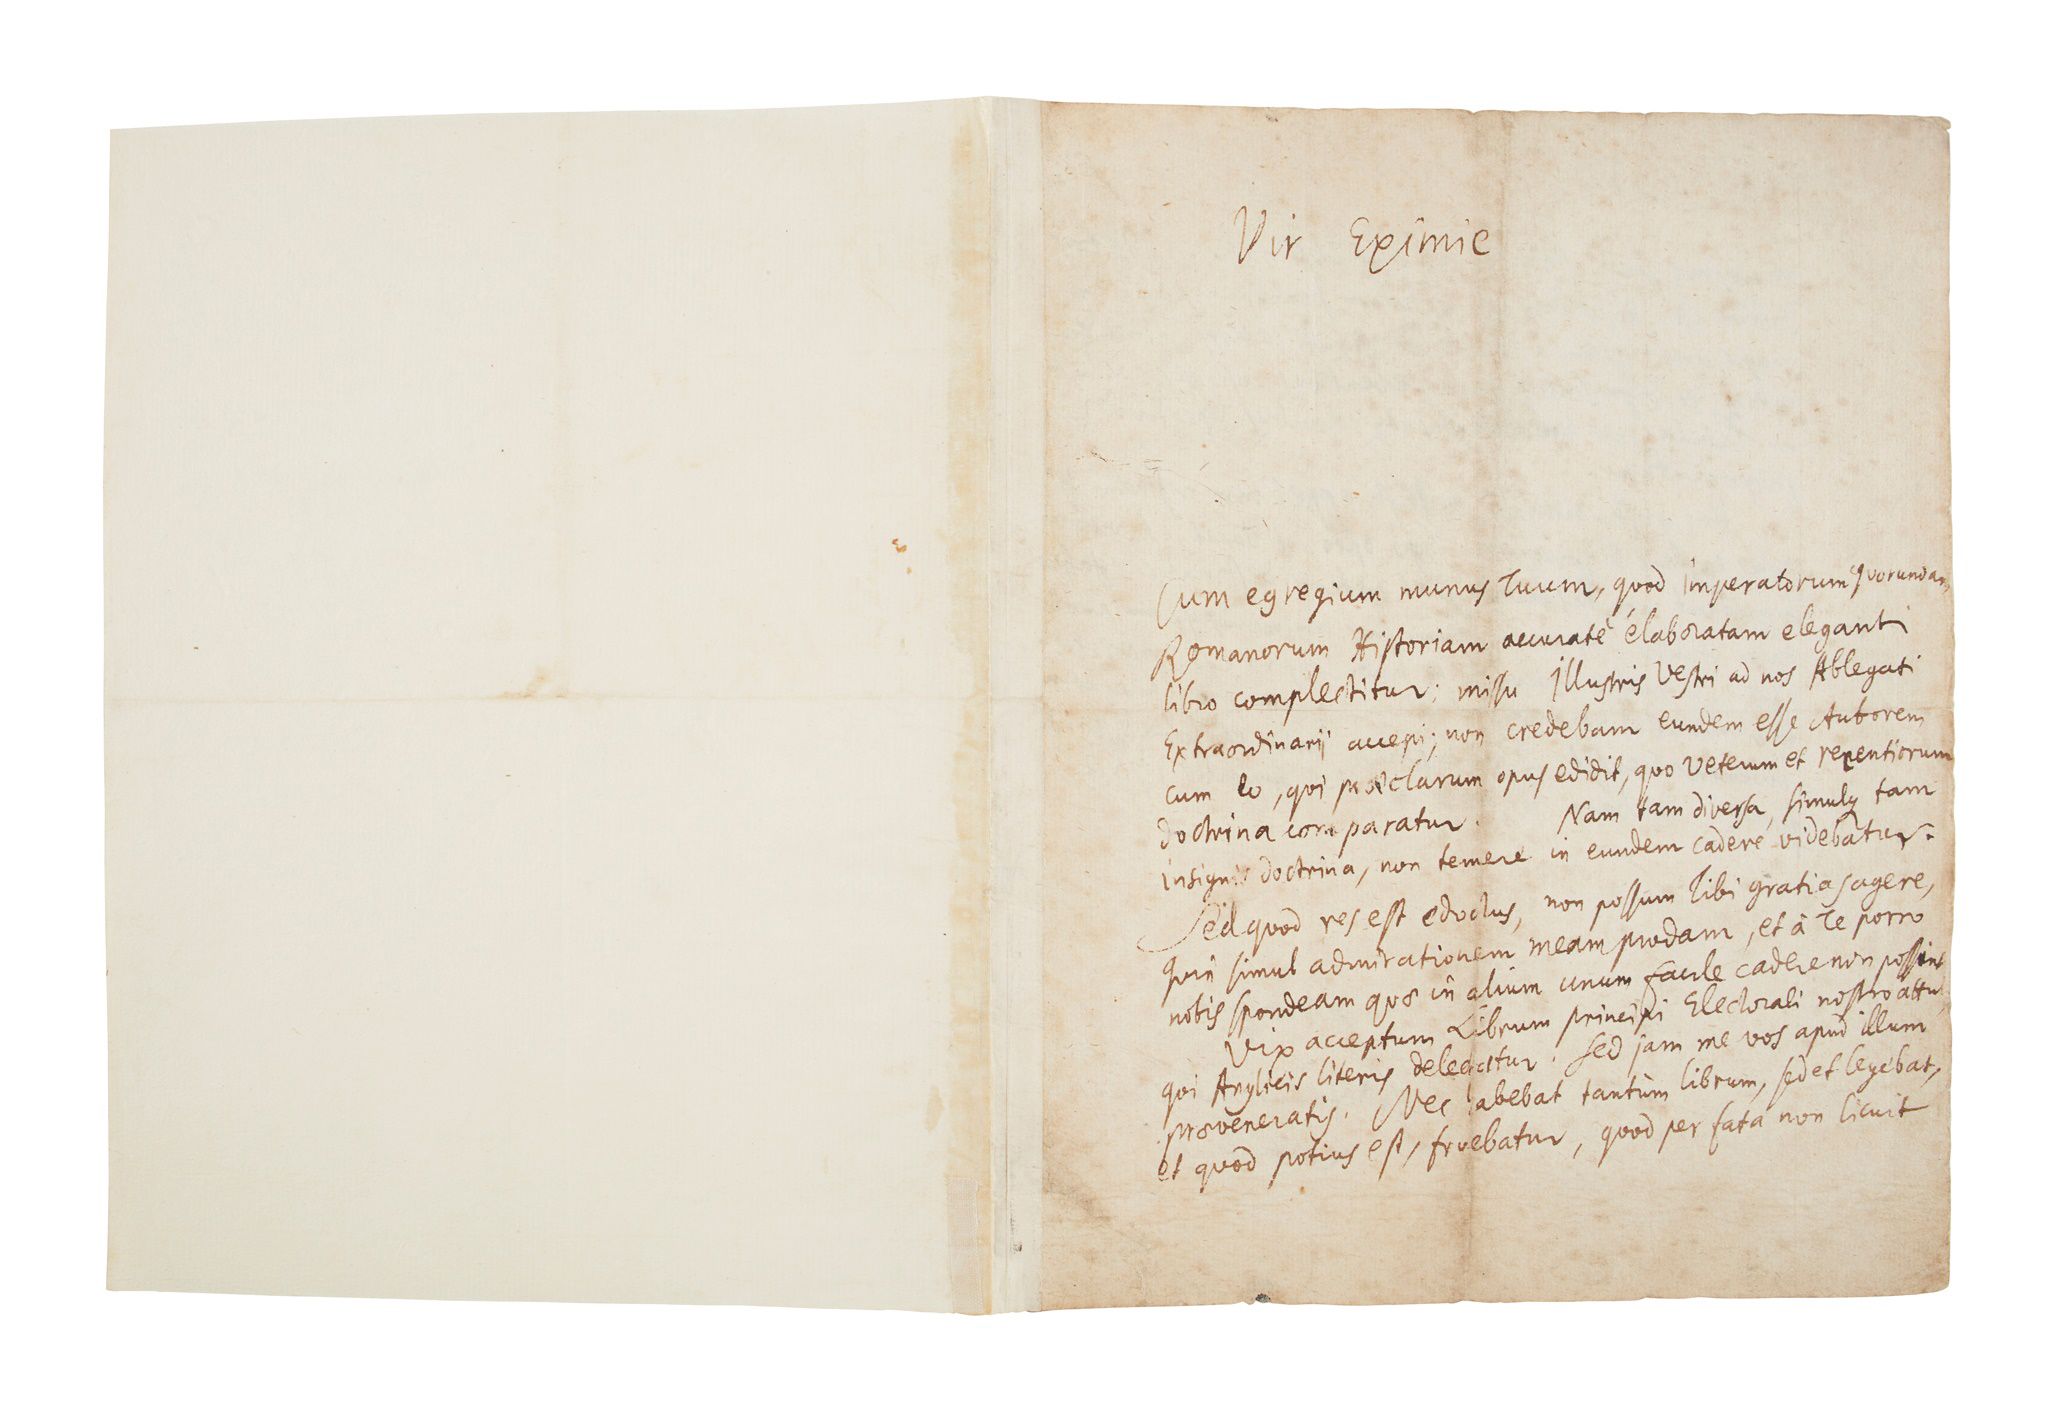 Vir Eximie
Cum egregium munus Tuum, quod Imperatorum quorundam
Romanorum Historiam accuratè elaboratam eleganti
libro complectitur; missu Illustris Vestri ad nos Ablegati
Extraordinarij accepi; non credebam eundem esse Autorem
cum eo, qui præclarum opus edidit, quo Veterum et recentiorum
doctrina comparatur. Nam tam diversa, simulq tam
insignis doctrina, non temere in eundem cadere videbatur.
Sed quod res est edoctus, non possum Tibi gratias agere,
quin simul admirationem meam prodam, et à Te porro
nobis spondeam quæ in alium unum facile cadere non possint
Vix acceptum Librum principi Electorali nostro attuli
qui Anglicis literis delectatur. Sed jam me vos apud illum
præveneratis. Nec habebat tantùm librum, sed et legebat,
et quod potius est, fruebatur, quod per fata non licuit